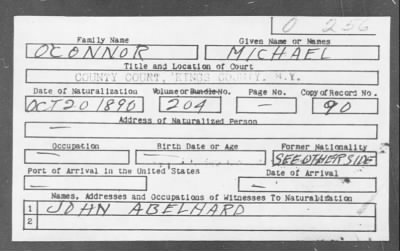 O 256
Family Name Given Name or Names
OCONNOR MICHAEL
Title and Location of Court
COUNTY COURT, KINGS COUNTY, N.Y.
Date of Naturalization Volume or Bundle No. Page No. Copy of Record No.
OCT 20 1890 204 — 90
Address of Naturalized Person
—
Occupation Birth Date or Age Former Nationality
— — SEE OTHER SIDE
Port of Arrival in the United States Date of Arrival
— —
Names, Addresses and Occupations of Witnesses To Naturalization
1 JOHN ABELHARD
2